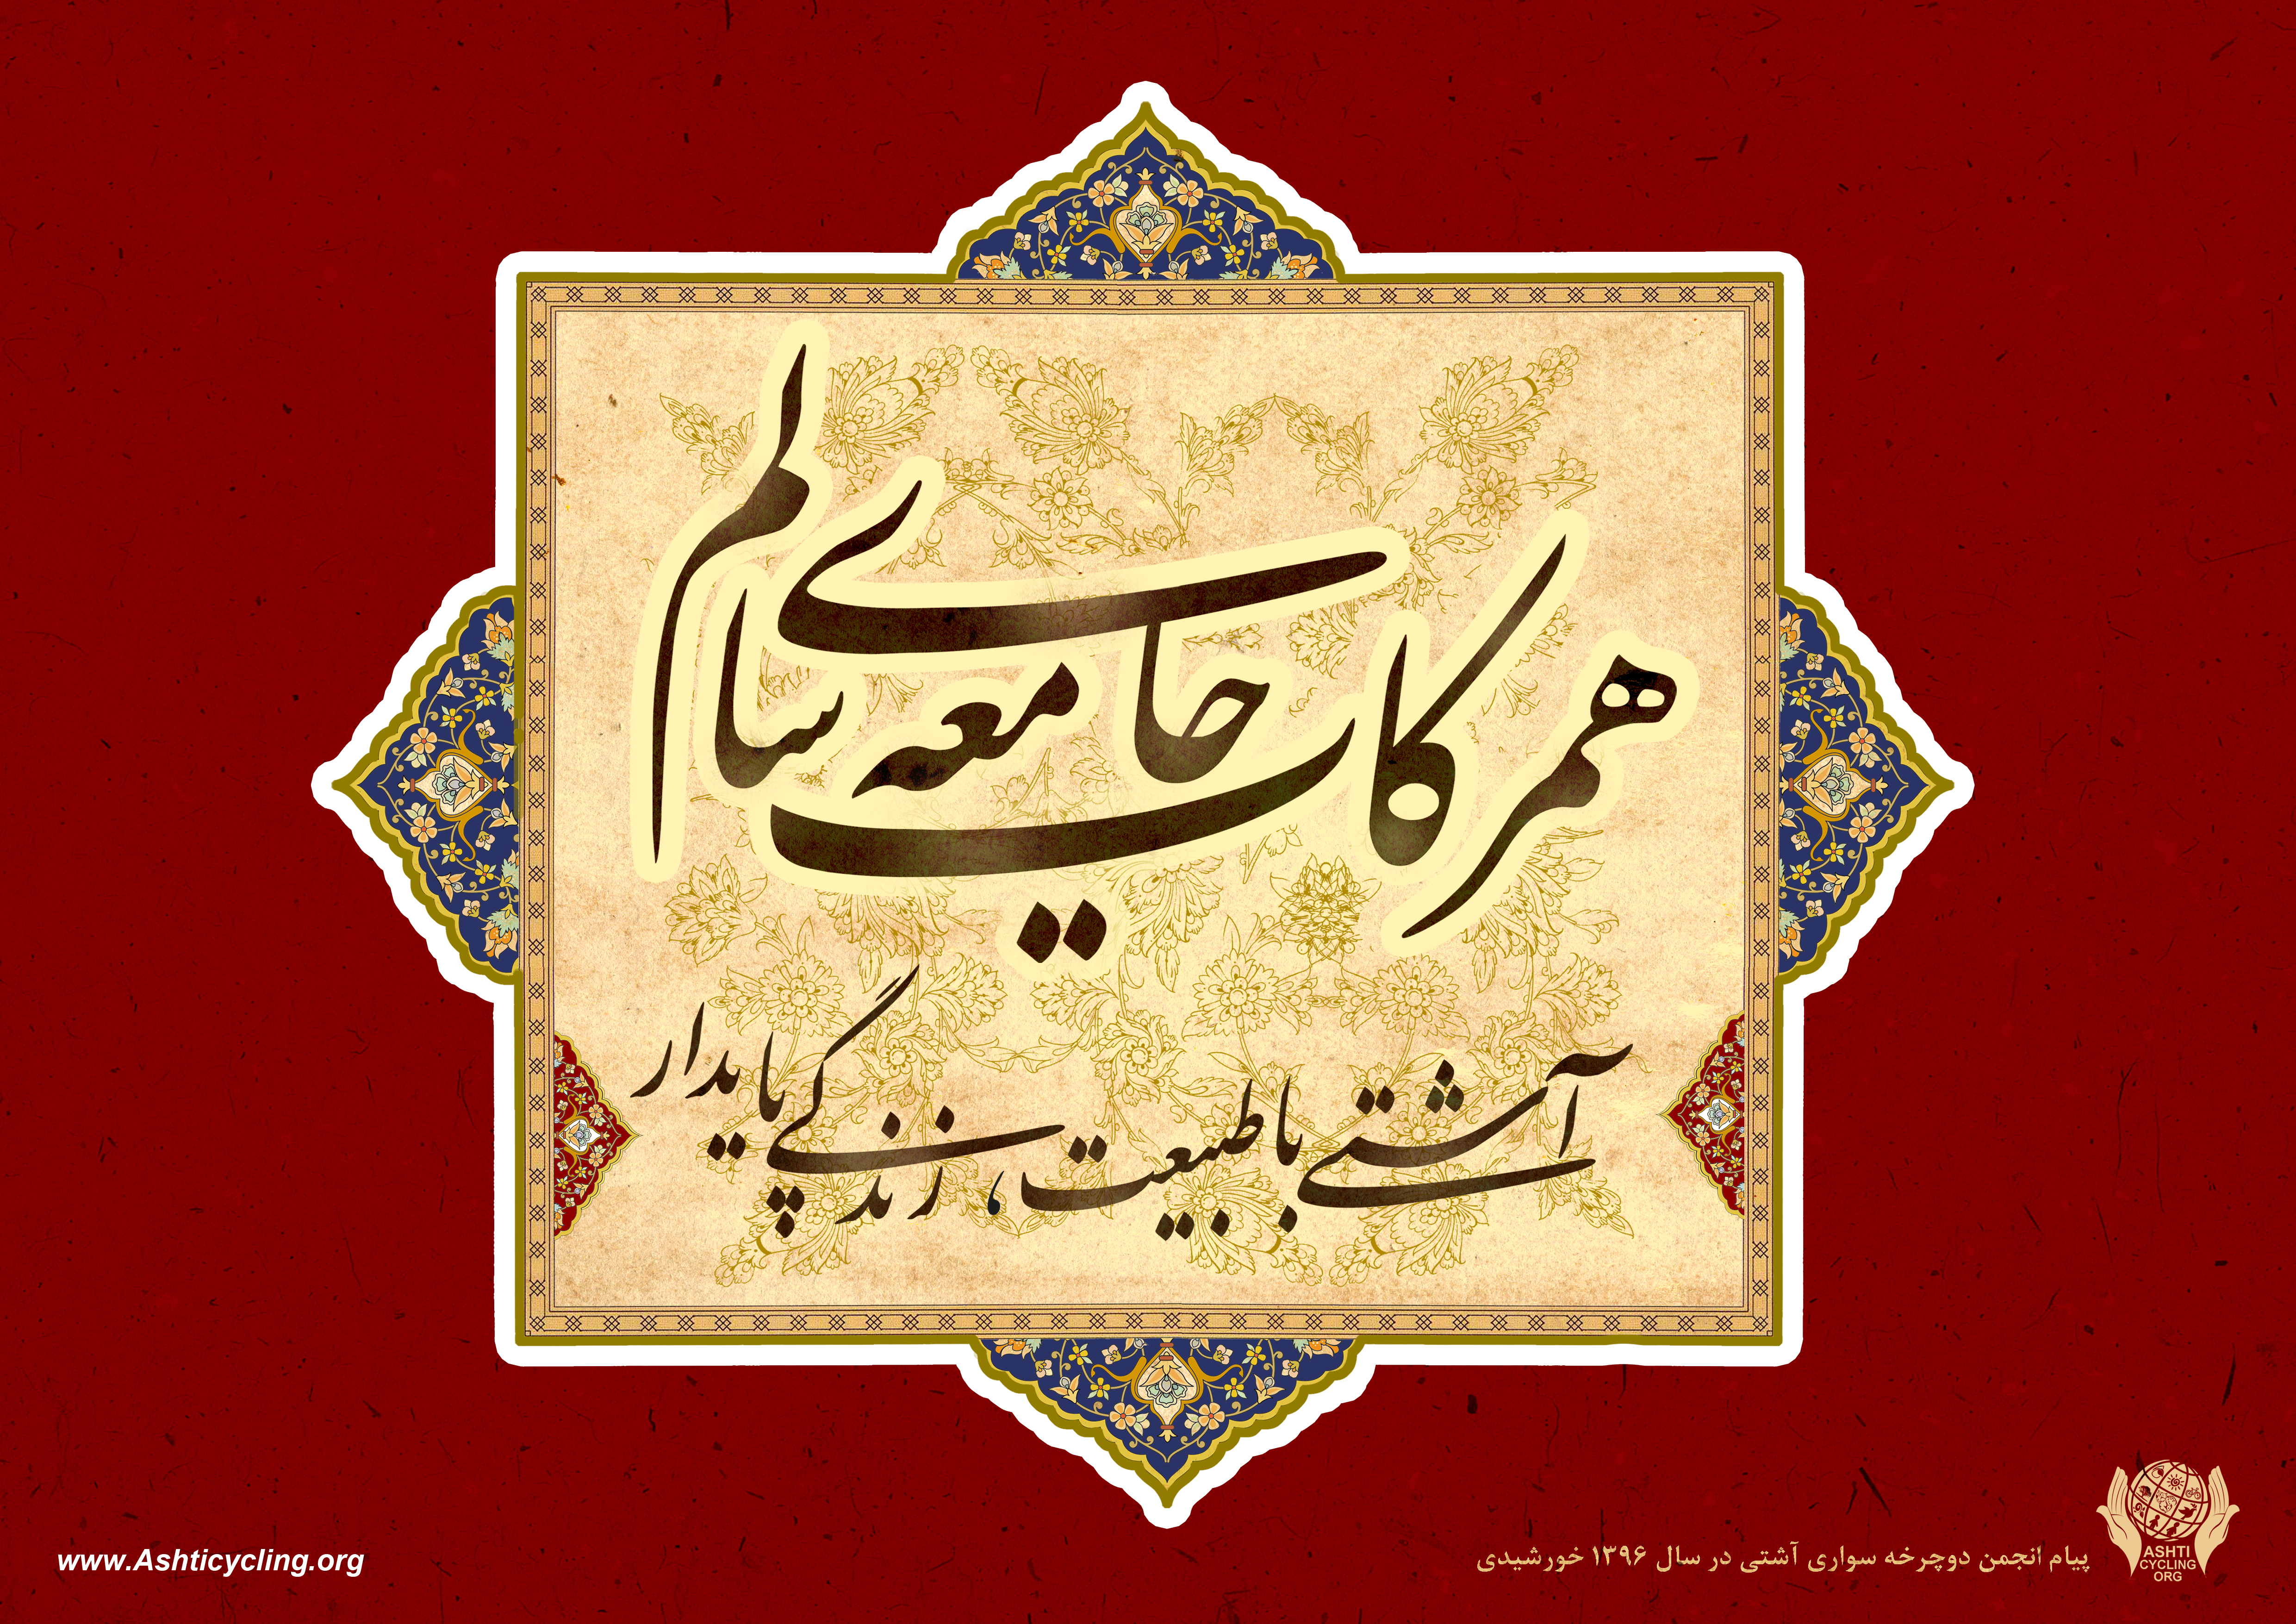 همرکاب جامعه ی سالم
آشتی با طبیعت، زندگی پایدار
پیام انجمن دوچرخه سواری آشتی در سال ۱۳۹۶ خورشیدی
ASHTI
CYCLING
ORG
www.Ashticycling.org